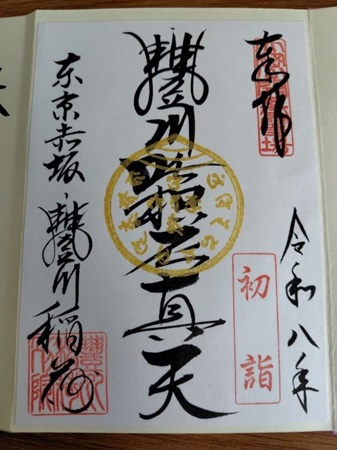 奉拝
令和八年
初詣
豐川吒枳尼真天
東京赤坂
豐川稲荷